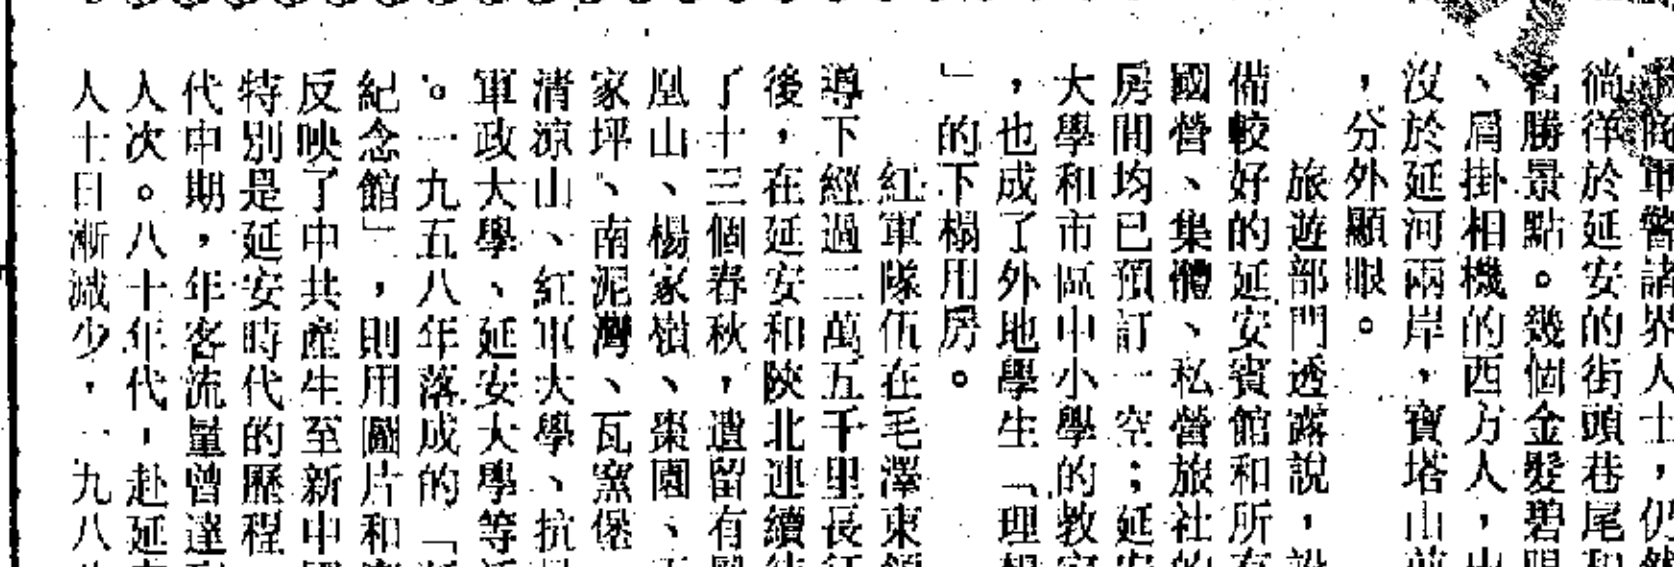 商軍警諸界人士，仍然
徜徉於延安的街頭巷尾和
名勝景點。幾個金髮碧眼
、肩掛相機的西方人，出
沒於延河兩岸，寶塔山前
，分外顯眼。
旅遊部門透露說，設
備較好的延安賓館和所有
國營、集體、私營旅社的
房間均已預訂一空；延安
大學和市區中小學的教室
，也成了外地學生「理想
」的下榻用房。
紅軍隊伍在毛澤東領
導下經過二萬五千里長征
後，在延安和陝北連續
了十三個春秋，遺留有鳳
凰山、楊家嶺、棗園、
家坪、南泥灣、瓦窯堡
清涼山、紅軍大學、抗
軍政大學、延安大學等
。一九五八年落成的「
紀念館」，則用圖片和
反映了中共產生至新中國
特別是延安時代的歷程
代中期，年客流量曾達到
人次。八十年代，赴延
人十日漸減少，一九八